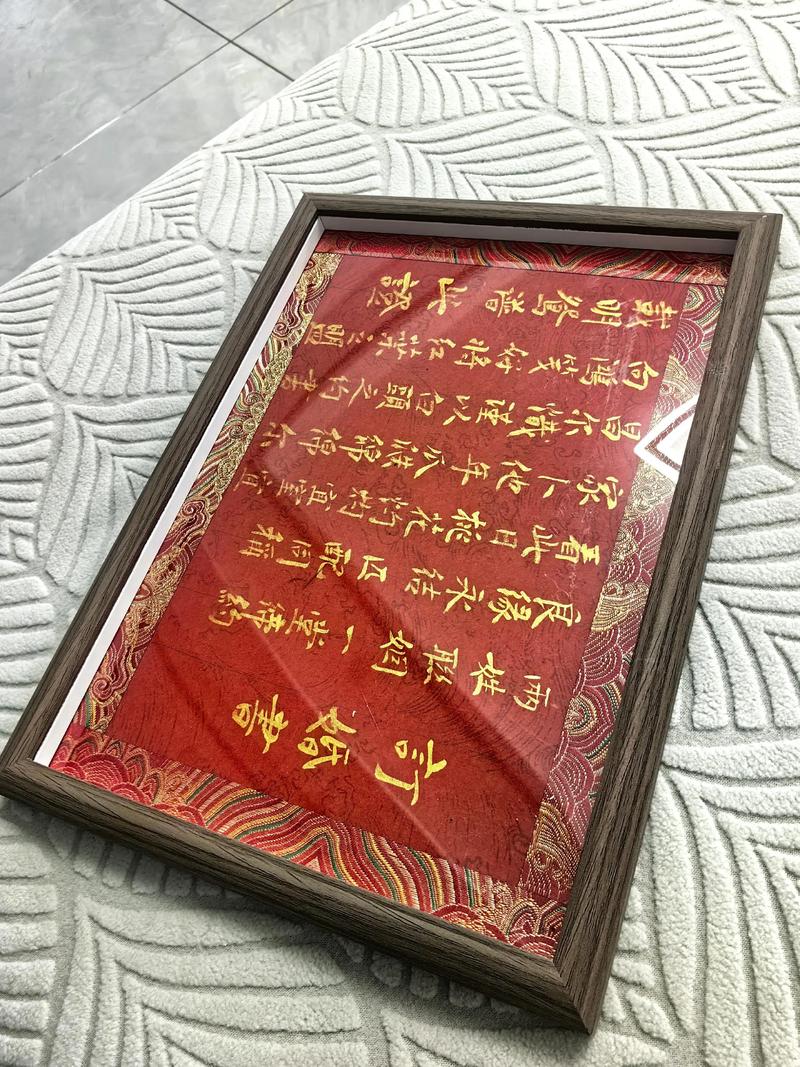 訂婚書
兩姓聯姻 一堂締約
良緣永結 匹配同稱
看此日桃花灼灼宜室宜
家卜他年瓜瓞綿綿尔
昌尔熾謹以白頭之約書
向鴻箋好將紅葉之盟
載明鴛譜此證